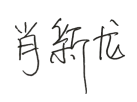 肖新龙